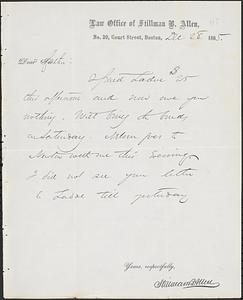 Law Office of Stillman B. Allen,
No. 20, Court Street, Boston, Dec 28 1885.
Dear Martin:
I paid Ladue $25
this afternoon and now owe you
nothing. Will bring the
on Saturday. goes to
with me this Evening
I did not see your letter
to Ladue till yesterday
Yours, respectfully,
Stillman B Allen